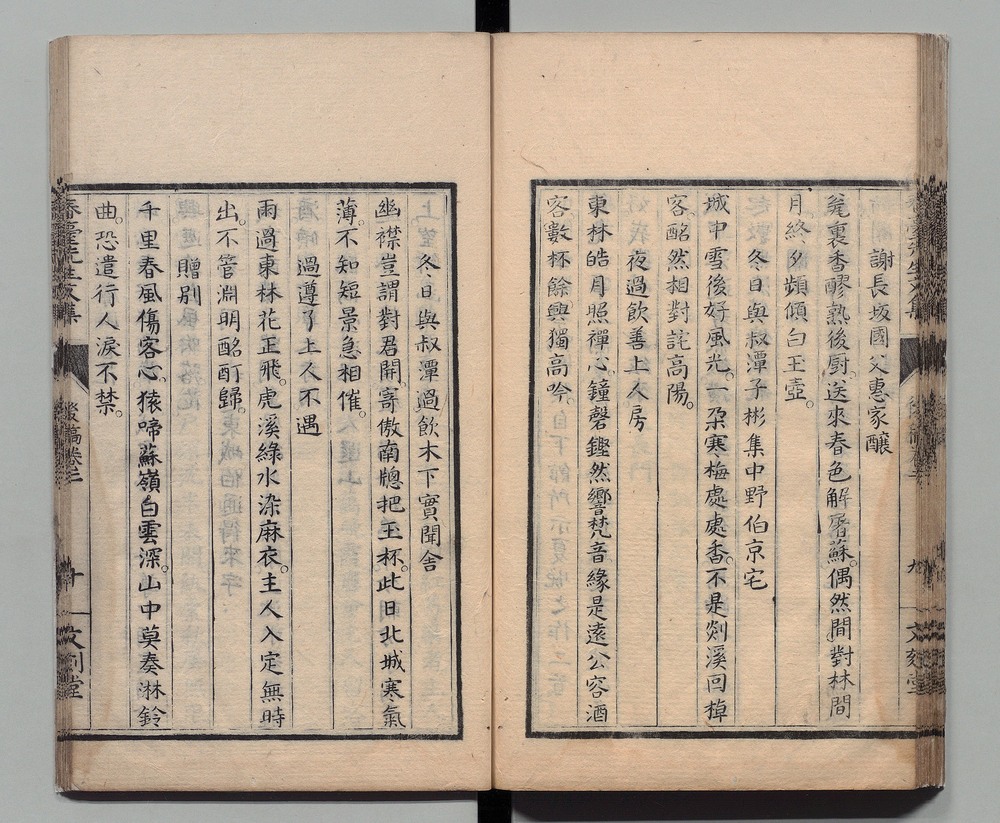 謝長坂國父惠家釀
甕裏香醪熟後厨。送來春色解屠蘇。偶然間對林間
月。終夕頻傾白玉壺。
冬日與叔潭子彬集中野伯京宅
城中雪後好風光。一朶寒梅處處香。不是剡溪回棹
客。酩然相對詫高陽。
夜過飲善上人房
東林皓月照禪心。鐘磬鏗然響梵音。緣是遠公容酒
客。數杯餘興獨高吟。
冬日與叔潭過飲木下實聞舍
幽襟豈謂對君開。寄傲南牕把玉杯。此日北城寒氣
薄。不知短景急相催。
過遵了上人不遇
雨過東林花正飛。虎溪綠水染麻衣。主人入定無時
出。不管淵明酩酊歸。
贈別
千里春風傷客心。猿啼蘇嶺白雲深。山中莫奏淋鈴
曲。恐遣行人淚不禁。
春臺先生文集
後稿卷二
十
文刻堂